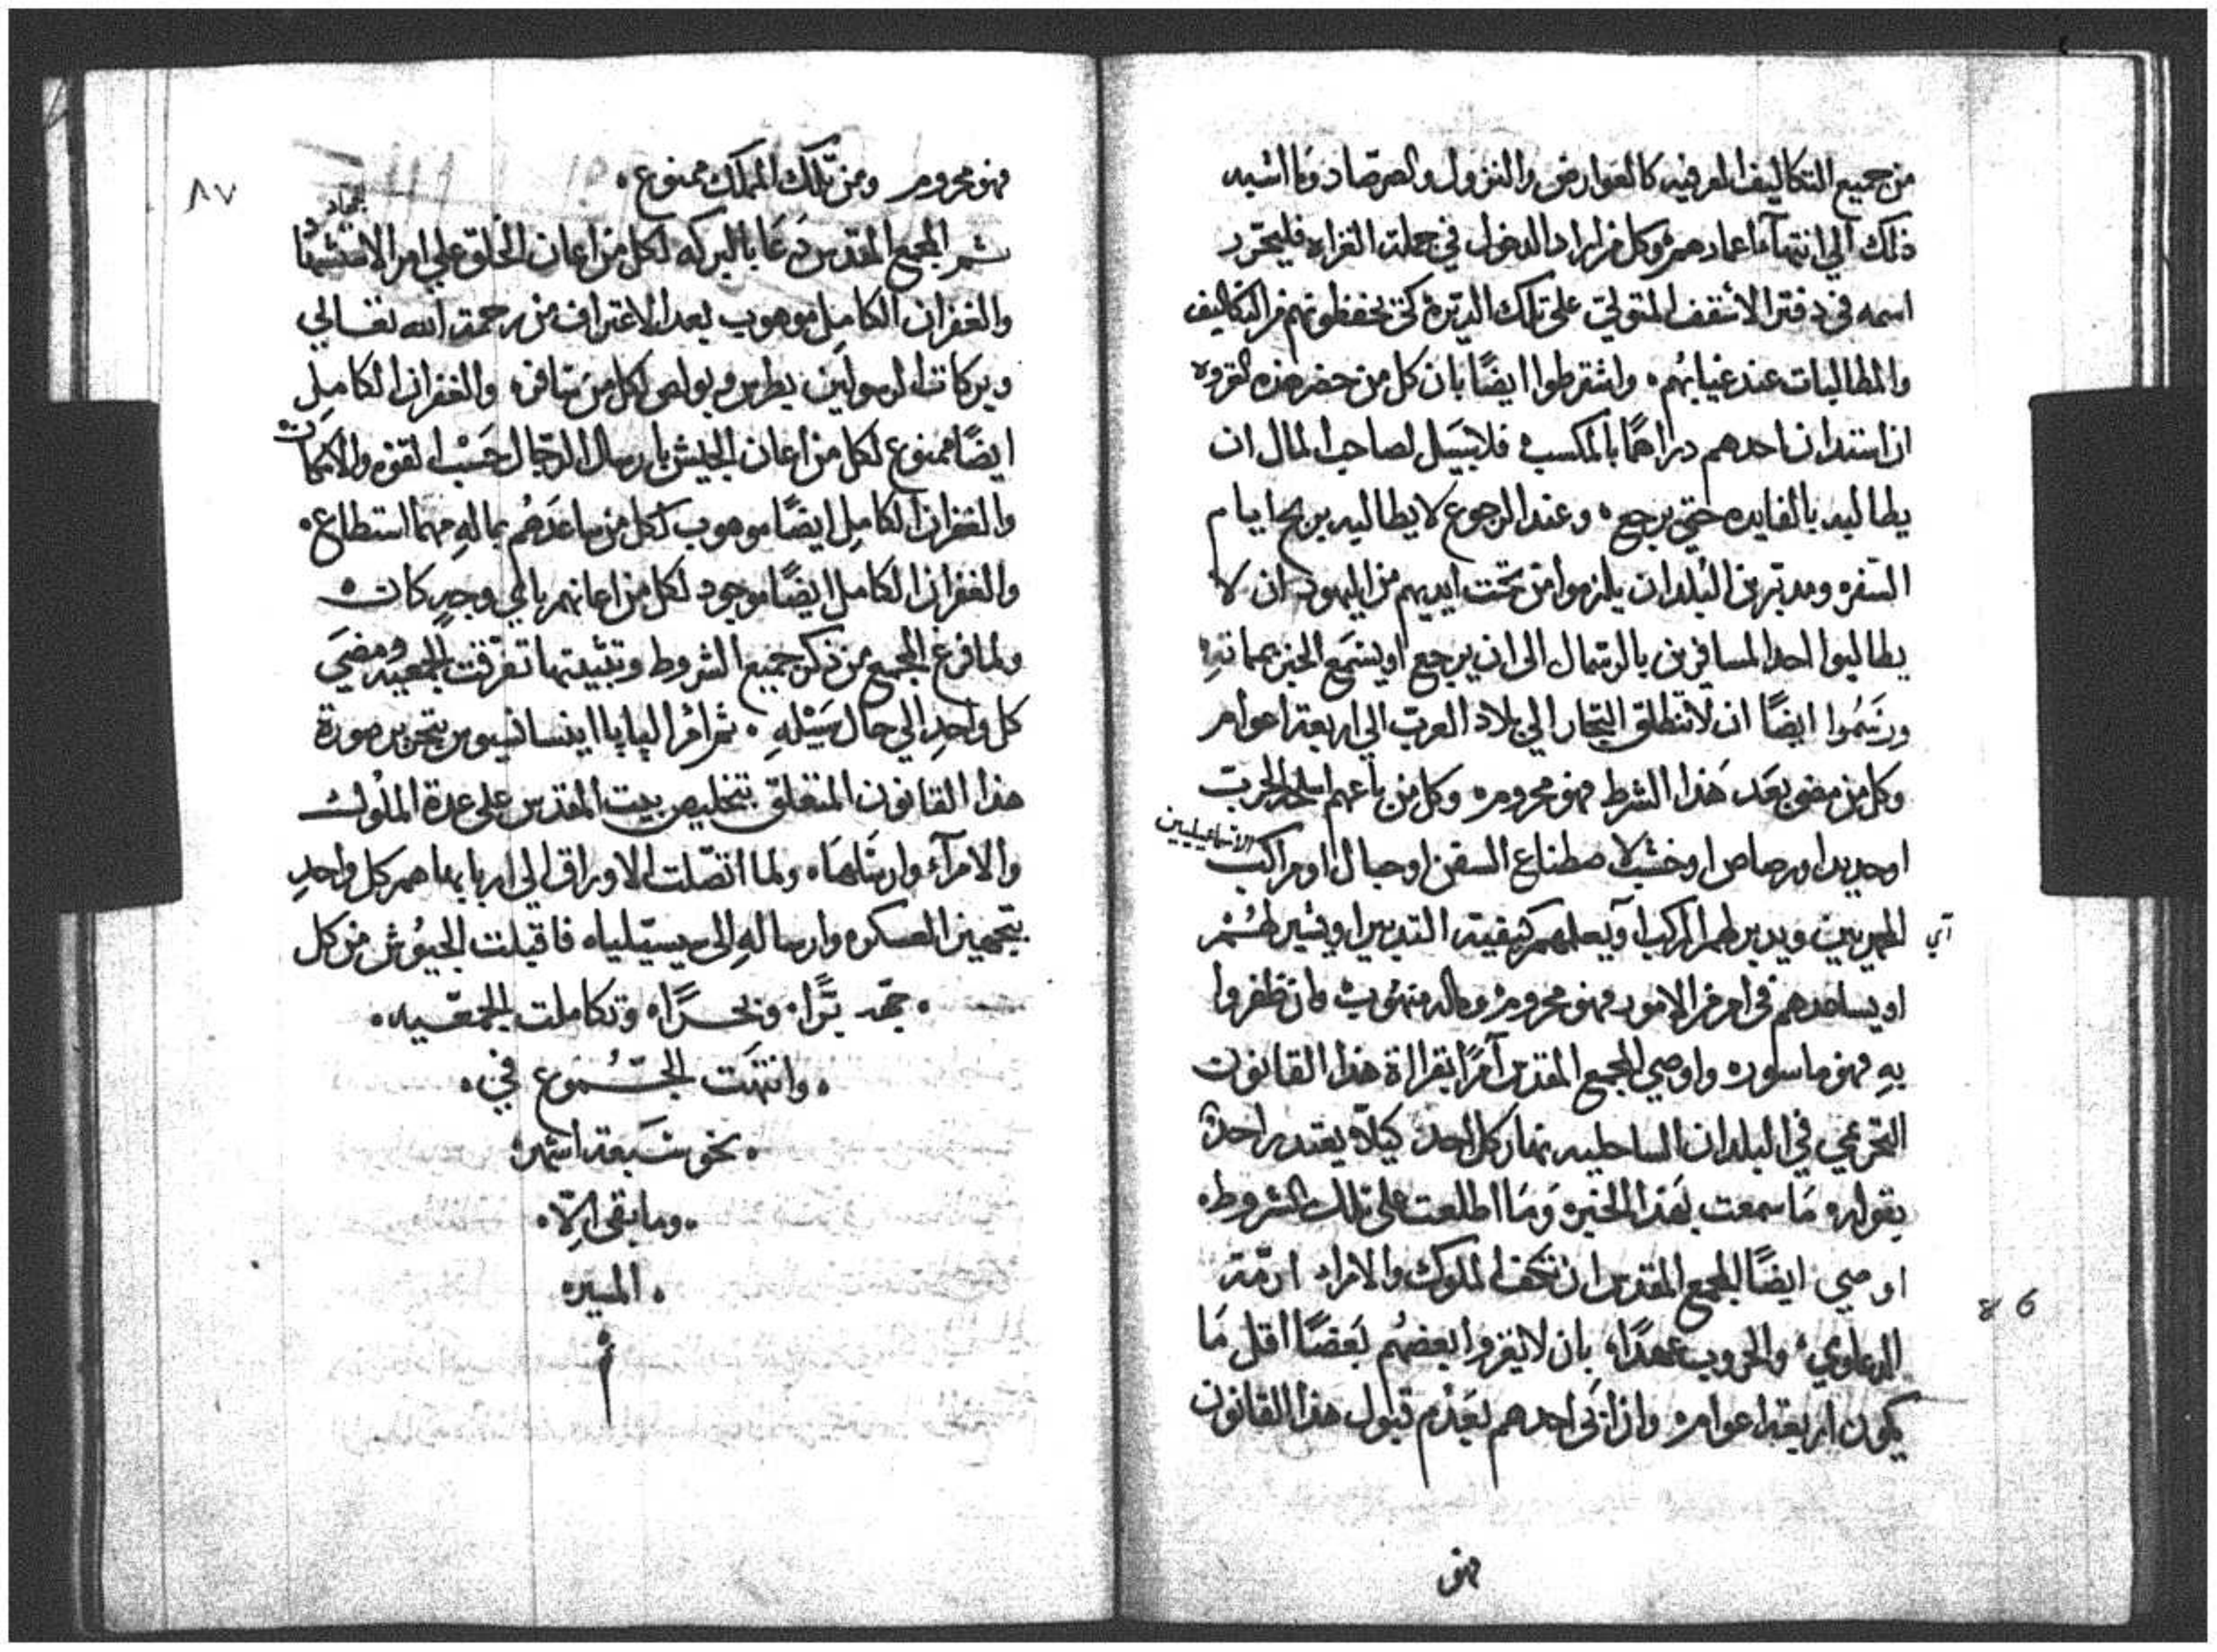 من جميع التكاليف العرفيه كالعوارض والنزول والصرصاد وما اشبه
ذلك الي انتهآء اعمادهم وكل من اراد الدخول في جملت الغزاه فليتحرر
اسمه في دفتر الأسقف المتولي على تلك الديره كي يحفظونهم من التكاليف
والمطالبات عند غيابهم ٠ واشترطوا ايضًا بان كل من حضر هذه الغزوه
ان استدان احدهم دراهمًا بالمكسب فلا سَبيل لصاحب المال ان
يطالبه بالفايده حتي يرجع ٠ وعند الرجوع لا يطالبه بربح ايام
السفره ومدبرين البلدان يلزموا من تحت ايديهم من اليهود ان لا
يطالبوا احد المسافرين بالرسمال الى ان يرجع او يسمَع الخبر بمماتهِ
ورسَمُوا ايضًا ان لا تنطلق التجار الي بلاد العرب الي اربعة اعوام
وكل من مضي بعَد هَذا الشرط فهو محروم وكل من باعهم اسلحة الحرب
او حديد او رصاص او خشب لاصطناع السفن او حبال او مراكب
الاسماعيليين
اي
المصريين ويدبر لهم المراكب او يعلمهم كيفية التدبير او يشير لهُم
او يساعدهم في امر من الامور فهو محروم وماله منهُوب وان ظفروا
بهِ فهو ماسور واوصي المجمع المقدس آمرًا بقراءة هذا القانون
التحرعي في البلدان الساحليه نهار كل احد كيلا يعتدر احد
بقوله مَا سمعت بهَذا الخبر وَمَا اطلعت على تلك الشروط
اوصي ايضًا المجمع المقدس ان تكف الملوك والامراء ازمة
الدعاوي والحروب عمدًا بان لا يغزوا بعضهُم بَعضًا اقل مَا
يكون اربعة اعوام واذا ابَى احدهم بعَدم قبول هذا القانون
فهو
86
٨٧
فهو محروم ومن تلك المملك ممنوع ٠
ثم المجمع المقدس دَعَا بالبركه لكل من اعان الخلق علي امر
والغفران الكامِل موهوب بعد الاعتراف من رحمة الله تعالي
وبركات الرسولين بطرس وبولص لكل من سَافر والغفران الكامِل
ايضًا ممنوع لكل من اعان الجيش بارسال الرجال حَسْب القوه والامكانات
والغفران الكامِل ايضًا موهوب لكل من ساعدَهُم بمالهِ مهما استطاع ٠
والغفران الكامل ايضًا موجود لكل من اعانهم باي وجهٍ كان
ولما فرغ المجمع من ذكر جميع الشروط وتثبيتها تفرّقت الجمعيه ومضيَ
كل واحدٍ الي حال سَبيْلهِ ٠ ثم امرُ الپاپا اينسانسيوس بتحرير صورة
هذا القانون المتعلق بتخليص بيت المقدس على عدة الملُوك
والامرآء وارسَلهَا ولما اتصّلت الاوراق الي اربابها هم كل واحدٍ
بتجهيز العسكر وارسالهِ الى سيسيليا فاقبلت الجيوُش من كل
٠ جهة برًا وبحرًا وتكاملت الجمعّيه ٠
٠ وانتهَت الجمُوع في ٠
٠ نحو سَبعة اشهر
٠ وما بقي إلّا ٠
٠ المسير